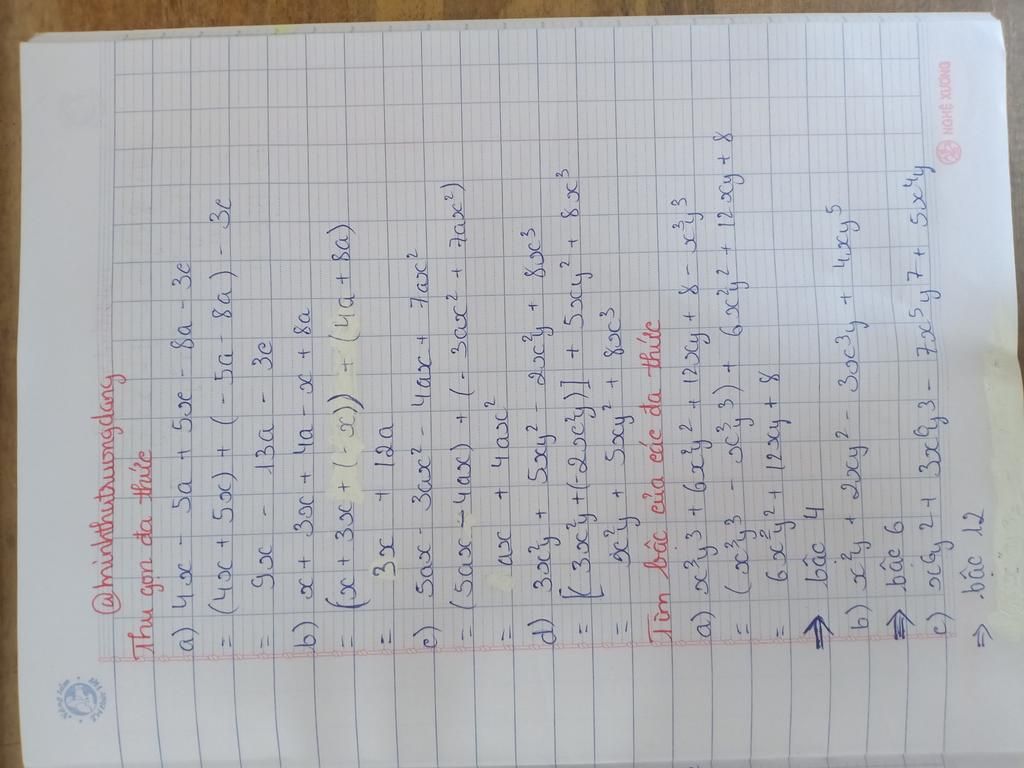 @minhthutruongdang
Thu gọn đa thức
a) 4x - 5a + 5x - 8a - 3c
= (4x + 5x) + (- 5a - 8a) - 3c
= 9x - 13a - 3c
b) x + 3x + 4a - x + 8a
= (x + 3x + (-x)) + (4a + 8a)
= 3x + 12a
c) 5ax - 3ax² - 4ax + 7ax²
= (5ax - 4ax) + (- 3ax² + 7ax²)
= ax + 4ax²
d) 3x²y + 5xy² - 2x²y + 8x³
= [3x²y + (-2x²y)] + 5xy² + 8x³
= x²y + 5xy² + 8x³
Tìm bậc của các đa thức
a) x³y³ + 6x²y² + 12xy + 8 - x³y³
= (x³y³ - x³y³) + 6x²y² + 12xy + 8
= 6x²y² + 12xy + 8
⇒ bậc 4
b) x²y + 2xy² - 3x³y + 4xy⁵
⇒ bậc 6
c) x⁶y² + 3x⁶y³ - 7x⁵y⁷ + 5x⁴y
⇒ bậc 12
NGHỆ XƯƠNG